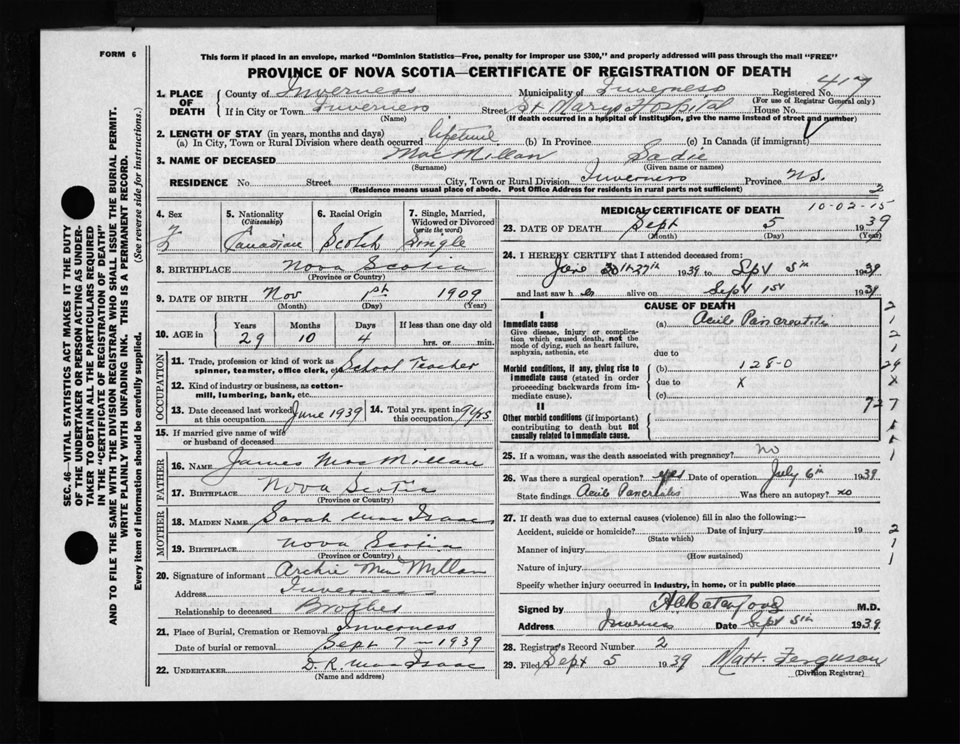 FORM 6
This form if placed in an envelope, marked "Dominion Statistics—Free, penalty for improper use $300," and properly addressed will pass through the mail "FREE"
PROVINCE OF NOVA SCOTIA—CERTIFICATE OF REGISTRATION OF DEATH
SEC. 46—VITAL STATISTICS ACT MAKES IT THE DUTY
OF THE UNDERTAKER OR PERSON ACTING AS UNDER-
TAKER TO OBTAIN ALL THE PARTICULARS REQUIRED
IN THE "CERTIFICATE OF REGISTRATION OF DEATH"
AND TO FILE THE SAME WITH THE DIVISION REGISTRAR WHO SHALL ISSUE THE BURIAL PERMIT.
WRITE PLAINLY WITH UNFADING INK. THIS IS A PERMANENT RECORD.
Every item of information should be carefully supplied. (See reverse side for instructions.)
1. PLACE OF DEATH County of Inverness Municipality of Inverness Registered No. 417
(For use of Registrar General only)
If in City or Town Inverness Street St Marys Hospital House No.
(Name) (If death occurred in a hospital or institution, give the name instead of street and number)
2. LENGTH OF STAY (in years, months and days)
(a) In City, Town or Rural Division where death occurred lifetime (b) In Province (c) In Canada (if immigrant)
3. NAME OF DECEASED MacMillan Sadie
(Surname) (Given name or names)
RESIDENCE No. Street City, Town or Rural Division Inverness Province N.S.
(Residence means usual place of abode. Post Office Address for residents in rural parts not sufficient)
2
4. Sex 5. Nationality (Citizenship) 6. Racial Origin 7. Single, Married, Widowed or Divorced (write the word)
F Canadian Scotch Single
8. BIRTHPLACE Nova Scotia
(Province or Country)
9. DATE OF BIRTH Nov 1st 1909
(Month) (Day) (Year)
10. AGE in Years Months Days If less than one day old
29 10 4 hrs. or min.
OCCUPATION
11. Trade, profession or kind of work as spinner, teamster, office clerk, etc. School Teacher
12. Kind of industry or business, as cotton-mill, lumbering, bank, etc.
13. Date deceased last worked at this occupation June 1939 14. Total yrs. spent in this occupation 9 yrs
15. If married give name of wife or husband of deceased
FATHER
16. NAME James MacMillan
17. BIRTHPLACE Nova Scotia
(Province or Country)
MOTHER
18. MAIDEN NAME Sarah MacIsaac
19. BIRTHPLACE Nova Scotia
(Province or Country)
20. Signature of informant Archie MacMillan
Address Inverness
Relationship to deceased Brother
21. Place of Burial, Cremation or Removal Inverness
Date of burial or removal Sept 7 — 1939
22. UNDERTAKER D. R. MacIsaac
(Name and address)
MEDICAL CERTIFICATE OF DEATH 10-02-15
23. DATE OF DEATH Sept 5 1939
(Month) (Day) (Year)
24. I HEREBY CERTIFY that I attended deceased from:
27th 1939 to Sept 5th 1939
and last saw h er alive on Sept 1st 1939
CAUSE OF DEATH
I
Immediate cause
Give disease, injury or complication which caused death, not the mode of dying, such as heart failure, asphyxia, asthenia, etc
(a)
due to
Morbid conditions, if any, giving rise to immediate cause (stated in order proceeding backwards from immediate cause).
(b) 128-0
due to X
(c)
727
II
Other morbid conditions (if important) contributing to death but not causally related to immediate cause.
25. If a woman, was the death associated with pregnancy? no
26. Was there a surgical operation? yes Date of operation July 6th 1939
State findings Was there an autopsy? no
27. If death was due to external causes (violence) fill in also the following:—
Accident, suicide or homicide? Date of injury 19
(State which)
Manner of injury
(How sustained)
Nature of injury
Specify whether injury occurred in industry, in home, or in public place
Signed by M.D.
Address Inverness Date Sept 5th 1939
28. Registrar's Record Number 2
29. Filed Sept 5 1939 Matt. Ferguson
(Division Registrar)